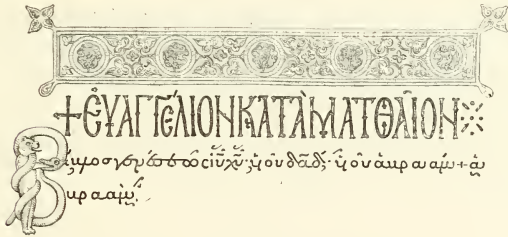 + ΕΥΑΓΓΕΛΙΟΝ ΚΑΤΑ ΜΑΤΘΑΙΟΝ ※
Βίβλος γενέσεως ἰῦ χῦ· υἱοῦ δαδ· υἱοῦ ἀβρααμ + ἀ
βρααμ·